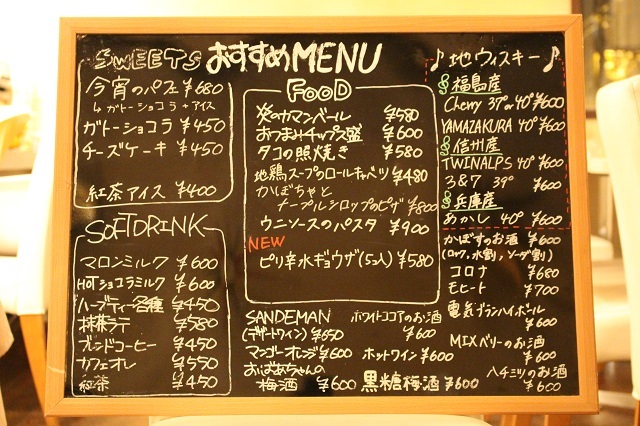 おすすめMENU
SWEETS
今宵のパフェ ¥680
ガトーショコラ+アイス
ガトーショコラ ¥450
チーズケーキ ¥450
紅茶アイス ¥400
SOFTDRINK
マロンミルク ¥600
HOTショコラミルク ¥600
ハーブティー各種 ¥450
抹茶ラテ ¥580
ブレンドコーヒー ¥450
カフェオレ ¥550
紅茶 ¥450
FOOD
炎のカマンベール ¥580
おつまみチップス盛 ¥600
タコの照焼き ¥580
地鶏スープのロールキャベツ ¥480
かぼちゃと
メープルシロップのピザ ¥800
ウニソースのパスタ ¥900
NEW
ピリ辛水ギョウザ(5コ入) ¥580
SANDEMAN
(デザートワイン) ¥650
マンゴーオレンジ ¥600
おばあちゃんの
梅酒 ¥600
ホワイトココアのお酒
¥600
ホットワイン ¥600
黒糖梅酒 ¥600
♪地ウィスキー♪
福島産
Cherry 37°or40° ¥600
YAMAZAKURA 40° ¥600
信州産
TWINALPS 40° ¥600
3&7 39° ¥600
兵庫産
あかし 40° ¥600
かぼすのお酒 ¥600
(ロック,水割,ソーダ割)
コロナ ¥680
モヒート ¥700
電気ブランハイボール
¥600
MIXベリーのお酒
¥600
ハチミツのお酒
¥600